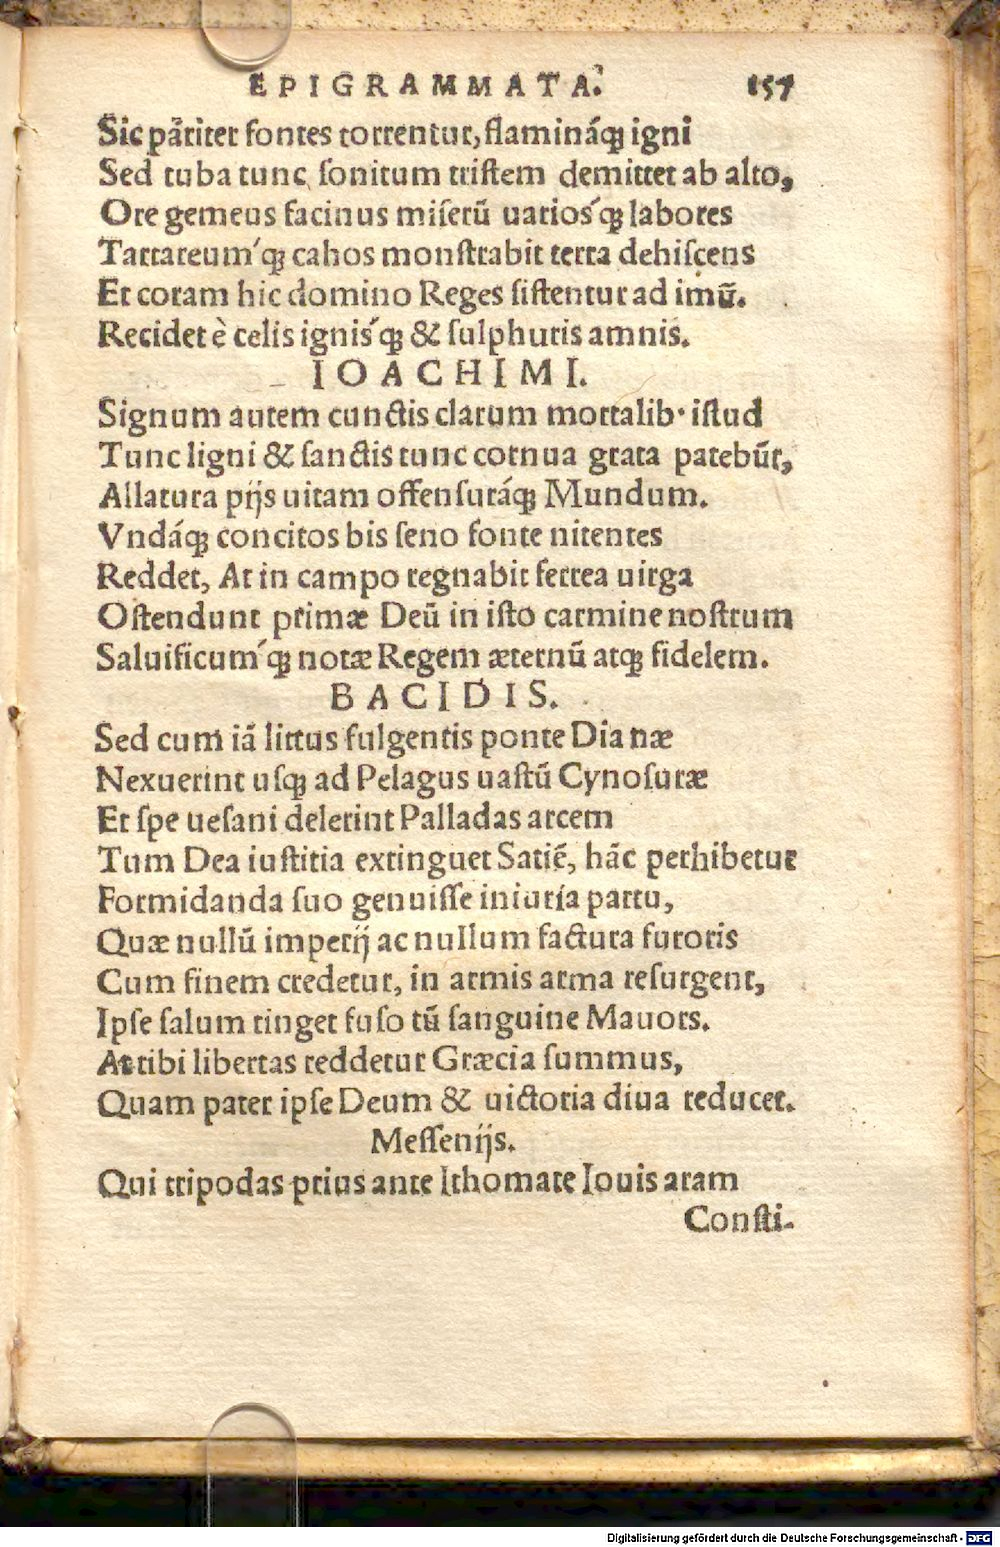 EPIGRAMMATA. 157
Sic pãriter fontes torrentur, flamináq; igni
Sed tuba tunc ſonitum triſtem demittet ab alto,
Ore gemeus facinus miſerũ uarios'q; labores
Tartareum'q; cahos monſtrabit terra dehiſcens
Et coram hic domino Reges ſiſtentur ad imũ.
Recidet è celis ignis'q; & ſulphuris amnis.
IOACHIMI.
Signum autem cunctis clarum mortalib· iſtud
Tunc ligni & ſanctis tunc cornua grata patebũt,
Allatura pijs uitam offenſuráq; Mundum.
Vndáq; concitos bis ſeno fonte nitentes
Reddet, At in campo regnabit ferrea uirga
Oſtendunt primæ Deũ in iſto carmine noſtrum
Saluificum'q; notæ Regem æternũ atq; fidelem.
BACIDIS.
Sed cum iã littus fulgentis ponte Dianæ
Nexuerint uſq; ad Pelagus uaſtũ Cynoſuræ
Et ſpe ueſani delerint Palladas arcem
Tum Dea iuſtitia extinguet Satiẽ, hãc perhibetur
Formidanda ſuo genuiſſe iniuría partu,
Quæ nullũ imperij ac nullum factura furoris
Cum finem credetur, in armis arma reſurgent,
Ipſe ſalum tinget fuſo tũ ſanguine Mauors.
At tibi libertas reddetur Græcia ſummus,
Quam pater ipſe Deum & uictoria diua reducet.
Meſſenijs.
Qui tripodas prius ante Ithomate Iouis aram
Conſti-
Digitalisierung gefördert durch die Deutsche Forschungsgemeinschaft - DFG